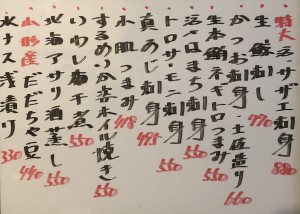 特大 活サザエ刺身 880
生 鯨刺し 770
かつお刺身・土佐造り 660
生本鮪ネギトロつまみ 550
活〆さばまち刺身 550
トロサーモン刺身 550
真あじ刺身 495
小肌つまみ 418
するめいか一本ホイル焼き 550
いわし海干煮 550
北海アサリ酒蒸し 550
山形産だだちゃ豆 440
水ナス浅漬り 330